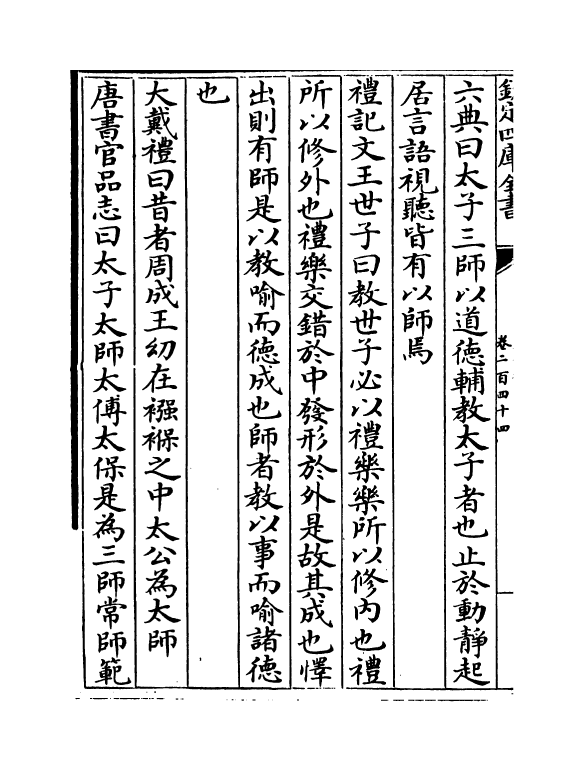 欽定四庫全書
卷二百四十四
六典曰太子三師以道德輔教太子者也止於動靜起
居言語視聽皆有以師焉
禮記文王世子曰教世子必以禮樂樂所以修內也禮
所以修外也禮樂交錯於中發形於外是故其成也懌
出則有師是以教喻而德成也師者教以事而喻諸德
也
大戴禮曰昔者周成王幼在襁褓之中太公為太師
唐書官品志曰太子太師太傅太保是為三師常師範